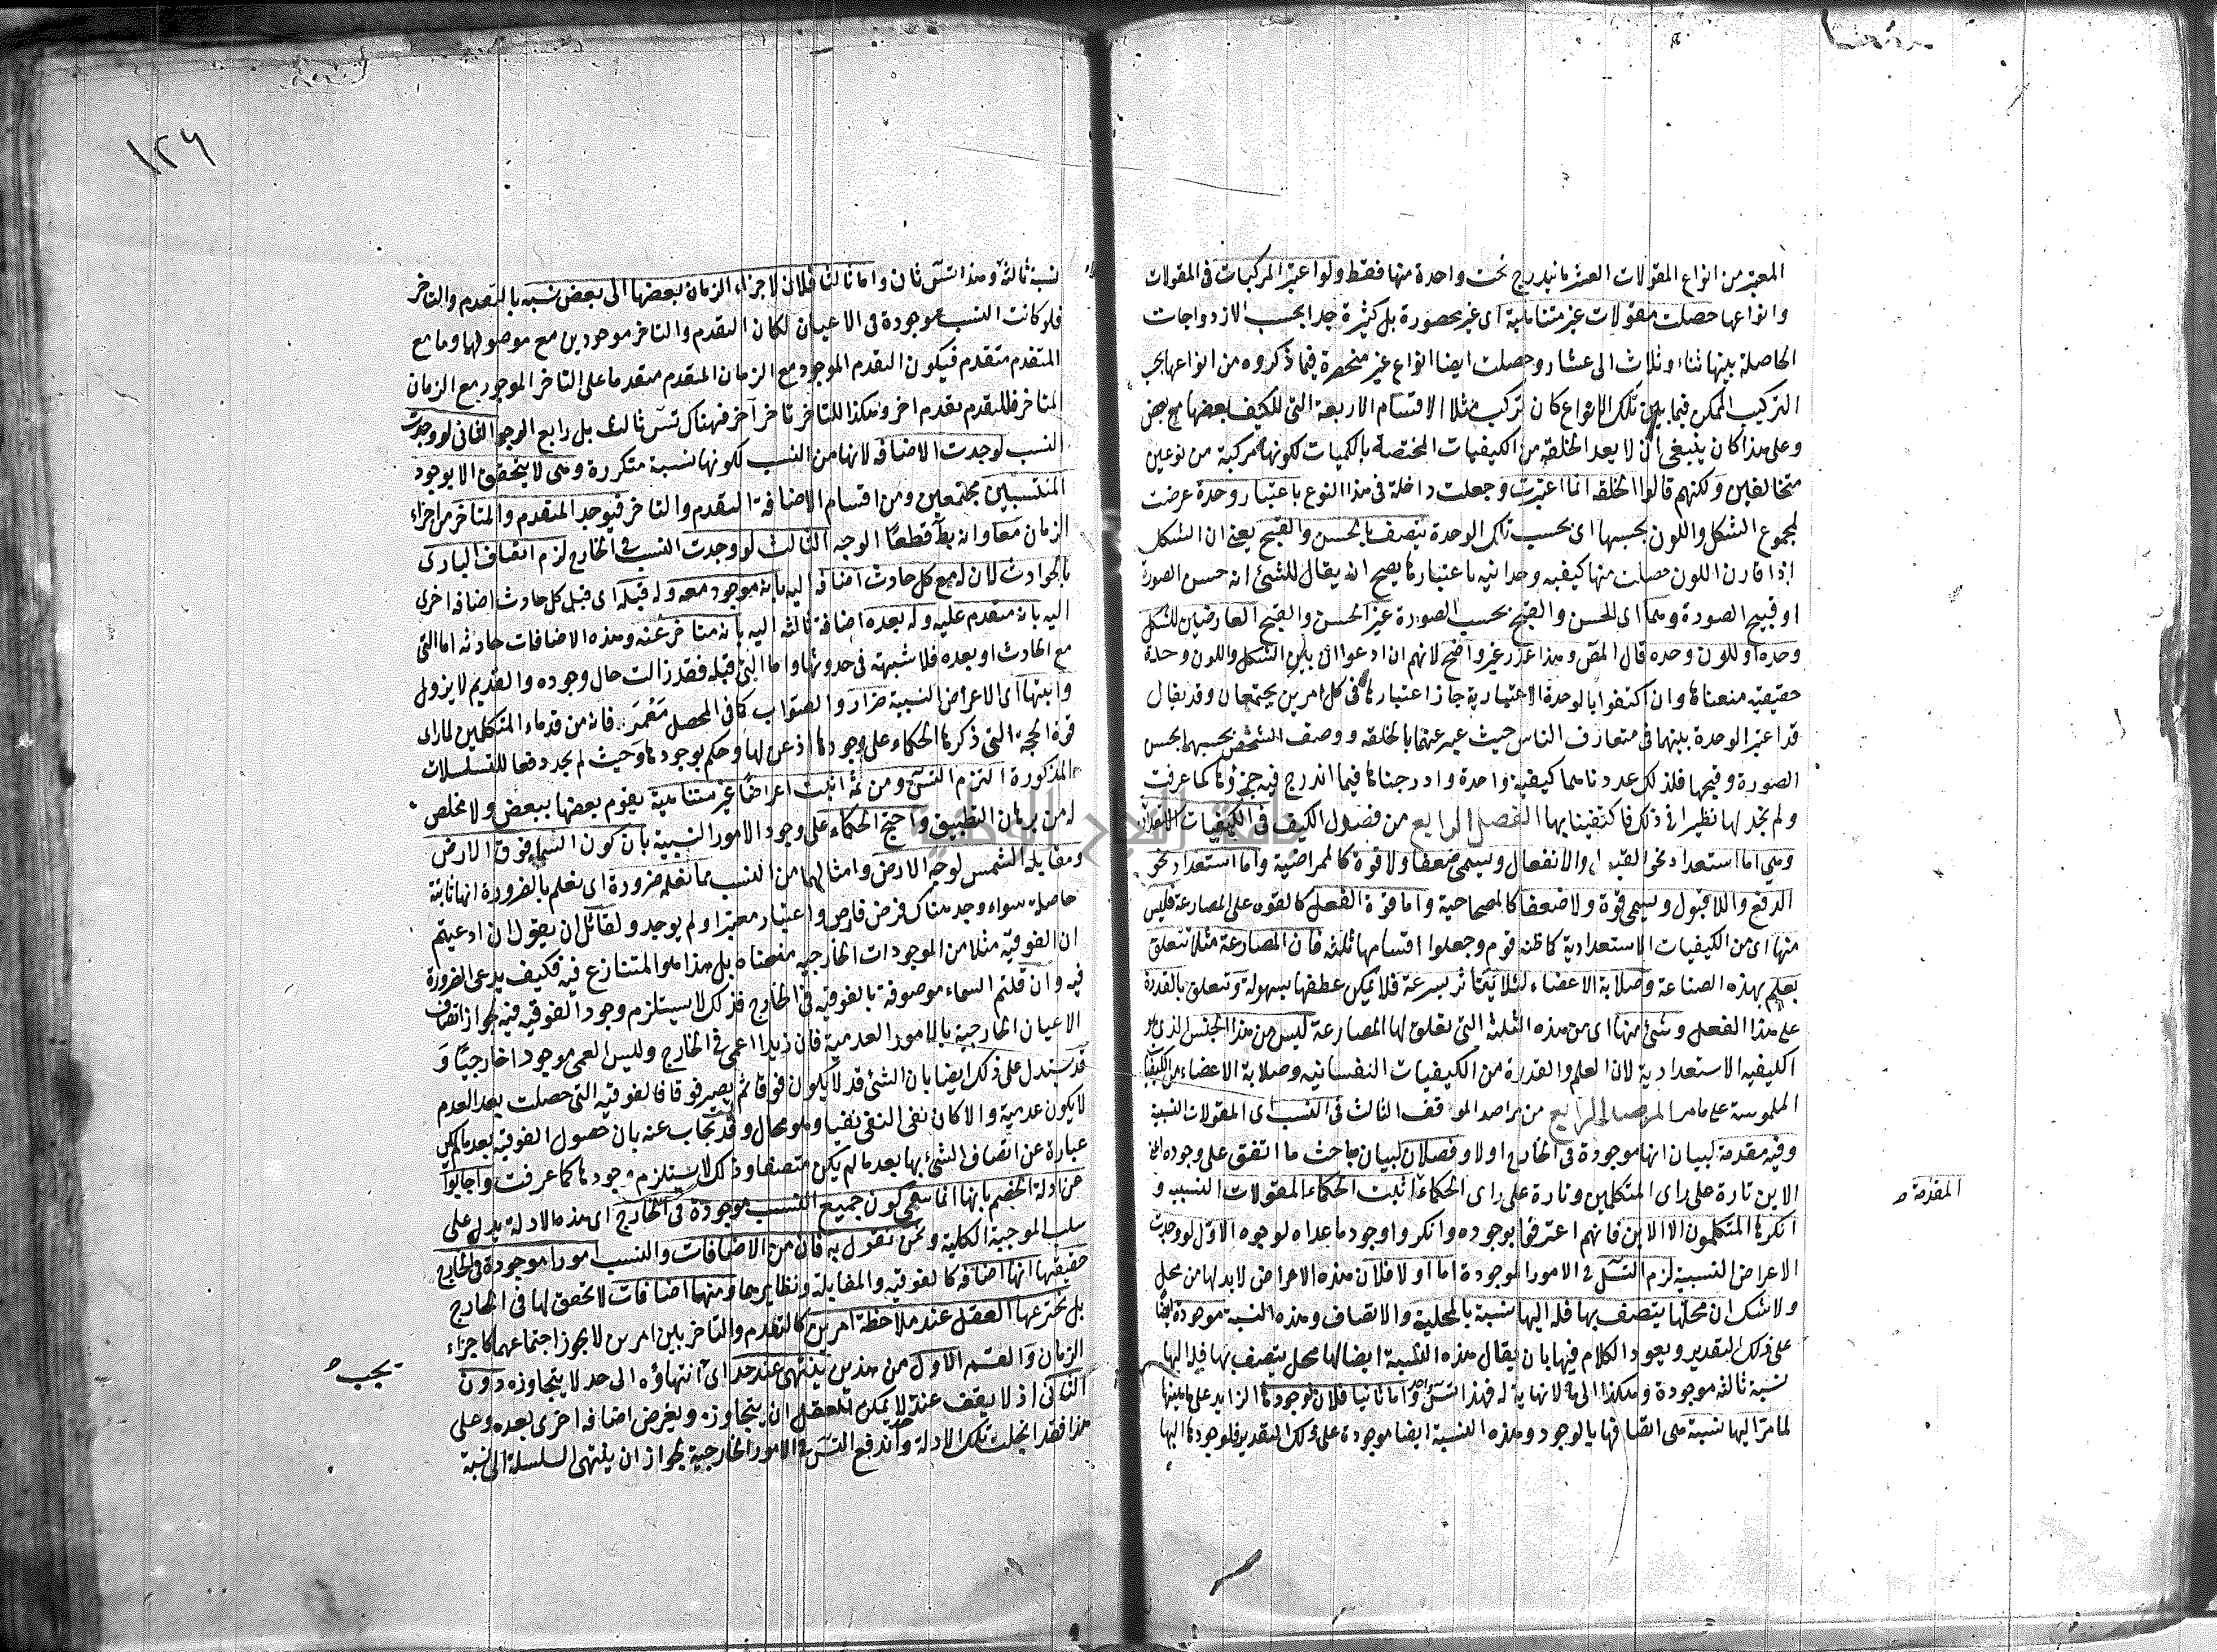 المعتبر من انواع المقولات العشر ما يندرج تحت واحدة منها فقط ولو اعتبر المركبات فى المقولات
وانواعها حصلت مقولات غير متناهية اى غير محصورة بل كثيرة جدا بحسب الازدواجات
الحاصلة بينها ثناء وثلاث الى عشار وحصلت ايضا انواع غير منحصرة فيما ذكروه من انواعها بحسب
التركيب الممكن فيما بين تلك الانواع كان تركب مثلا الاقسام الاربعة التى للكيف بعضها مع بعض
وعلى هذا كان ينبغى ان لا يعد الخلقة من الكيفيات المختصة بالكميات لكونها مركبة من نوعين
متخالفين ولكنهم قالوا الخلقه انما اعتبرت وجعلت داخلة فى هذا النوع باعتبار وحدة عرضت
لمجموع الشكل واللون بحسبها اى بحسب تلك الوحدة يتصف بالحسن والقبح يعنى ان الشكل
اذا قارن اللون حصلت منها كيفيه وحدانيه باعتبارها يصح ان يقال للشئ انه حسن الصورة
او قبيح الصورة وهما اى الحسن والقبح بحسب الصورة غير الحسن والقبح العارضين للشكل
وحده او للون وحده قال المص وهذا عذر غير واضح لانهم ان ادعوا ان بين الشكل واللون وحدة
حقيقيه منعناها وان اكتفوا بالوحدة الاعتبارية جاز اعتبارها فى كل امرين يجتمعان وقد يقال
قد اعتبر الوحدة بينهما فى متعارف الناس حيث عبر عنهما بالخلقه ووصف الشخص بحسبها بحسن
الصورة وقبحها فلذلك عددناهما كيفية واحدة وادرجناها فيما اندرج فيه جزؤها كما عرفت
ولم نجد لها نظيرا فى ذلك فاكتفينا بها الفصل الرابع من فصول الكيف فى الكيفيات الاستعدادية
وهى اما استعداد نحو القبول والانفعال ويسمى ضعفا ولا قوة كالممراضية واما استعداد نحو
الدفع واللاقبول ويسمى قوة ولا ضعفا كالمصحاحية واما قوة الفعل كالقوة على المصارعة فليس
منها اى من الكيفيات الاستعدادية كما ظنه قوم وجعلوا اقسامها ثلثه فان المصارعة مثلا تتعلق
بعلم بهذه الصناعة وصلابة الاعضاء لئلا يتاثر بسرعة فلا يمكن عطفها بسهولة وتتعلق بالقدرة
على هذا الفعل وشئ منها اى من هذه الثلثه التى تعلق لها المصارعة ليس من هذا الجنس الذى هو
الكيفيه الاستعدادية لان العلم والقدرة من الكيفيات النفسانيه وصلابة الاعضاء من الكيفيات
الملموسة على ما مر المرصد الرابع من مراصد الموقف الثالث فى النسب اى المقولات النسبية
وفيه مقدمة لبيان انها موجودة فى الخارج اولا وفصلان لبيان مباحث ما اتفق على وجوده اعنى
الاين تارة على راى المتكلمين وتارة على راى الحكماء اثبت الحكماء المقولات النسبيه و
المقدمة
انكرها المتكلمون الا الاين فانهم اعترفوا بوجوده وانكروا وجود ما عداه لوجوه الاول لو وجدت
الاعراض النسبية لزم التس فى الامور الموجودة اما اولا فلان هذه الاعراض لا بد لها من محل
ولا شك ان محلها يتصف بها فله اليها نسبة بالمحلية والاتصاف وهذه النسبة موجودة ايضا
على ذلك التقدير ويعود الكلام فيها بان يقال هذه النسبة ايضا لها محل يتصف بها فله اليها
نسبة ثالثه موجودة وهكذا الى ما لا نهاية له فهذا تس واما ثانيا فلان لوجودها الزائد على ماهيتها
لما مر اليها نسبة هى اتصافها بالوجود وهذه النسبة ايضا موجودة على ذلك التقدير فلوجودها اليها
١٢٤
نسبة ثالثة وهذا تس ثان واما ثالثا فلان لاجزاء الزمان بعضها الى بعض نسبه بالتقدم والتاخر
فلو كانت النسب موجودة فى الاعيان لكان التقدم والتاخر موجودين مع موصوفهما وما مع
المتقدم متقدم فيكون التقدم الموجود مع الزمان المتقدم متقدما على التاخر الموجود مع الزمان
المتاخر فللتقدم تقدم اخر وهكذا للتاخر تاخر آخر فهناك تس ثالث بل رابع الوجه الثانى لو وجدت
النسب لوجدت الاضافه لانها من النسب لكونها نسبة متكررة وهى لا يتحقق الا بوجود
المنتسبين مجتمعين ومن اقسام الاضافة التقدم والتاخر فيوجد المتقدم والمتاخر من اجزاء
الزمان معا وانه بط قطعا الوجه الثالث لو وجدت النسب فى الخارج لزم اتصاف البارى
بالحوادث لان له مع كل حادث اضافة اليه بانه موجود معه وله قبله اى قبل كل حادث اضافه اخرى
اليه بانه متقدم عليه وله بعده اضافة ثالثه اليه بانه متاخر عنه وهذه الاضافات حادثه اما التى
مع الحادث او بعده فلا شبهة فى حدوثها واما التى قبله فقد زالت حال وجوده والقديم لا يزول
واثبتها اى الاعراض النسبية ضرار والصواب كما فى المحصل معمر فانه من قدماء المتكلمين لما راى
قوة الحجة التى ذكرها الحكماء على وجودها اذعن لها وحكم بوجودها وحيث لم يجد دفعا للتسلسلات
المذكورة التزم التس ومن ثمة اثبت اعراضا غير متناهية يقوم بعضها ببعض ولا مخلص
له من برهان التطبيق واحتج الحكماء على وجود الامور النسبية بان كون السماء فوق الارض
ومقابلة الشمس لوجه الارض وامثالهما من النسب مما نعلمه ضرورة اى نعلم بالضرورة انها ثابتة
حاصلة سواء وجد هناك فرض فارض واعتبار معتبر او لم يوجد ولقائل ان يقول ان ادعيتم
ان الفوقية مثلا من الموجودات الخارجيه منعناه بل هذا هو المتنازع فيه فكيف يدعى الضرورة
فيه وان قلتم السماء موصوفة بالفوقيه فى الخارج فذلك لا يستلزم وجود الفوقيه فيه لجواز اتصاف
الاعيان الخارجية بالامور العدمية فان زيدا اعمى فى الخارج وليس العمى موجودا خارجيا و
قد يستدل على ذلك ايضا بان الشئ قد لا يكون فوقا ثم يصير فوقا فالفوقيه التى حصلت بعد العدم
لا يكون عدمية والا كان نفى النفى نفيا وهو محال وقد يجاب عنه بان حصول الفوقيه بعد ما لم يكن
عبارة عن اتصاف الشئ بها بعد ما لم يكن متصفا وذلك لا يستلزم وجودها كما عرفت واجابوا
عن ادلة الخصم بانها انما تنفى كون جميع النسب موجودة فى الخارج اى هذه الادلة يدل على
سلب الموجبة الكلية ونحن نقول به فان من الاضافات والنسب امورا موجودة فى الخارج
حقيقتها انها اضافه كالفوقيه والمقابلة ونظايرهما ومنها اضافات لا تحقق لها فى الخارج
بل يخترعها العقل عند ملاحظة امرين كالتقدم والتاخر بين امرين لا يجوز اجتماعهما كاجزاء
الزمان والقسم الاول من هذين ينتهى عند حد اى انتهاؤه الى حد لا يتجاوزه دون
يجب
الثانى اذ لا يقف عند لا يمكن للعقل ان يتجاوزه ويفرض اضافه اخرى بعده وعلى
هذا فقد انحلت تلك الادلة واندفع التس فى الامور الخارجية لجواز ان ينتهى السلسلة الى نسبة